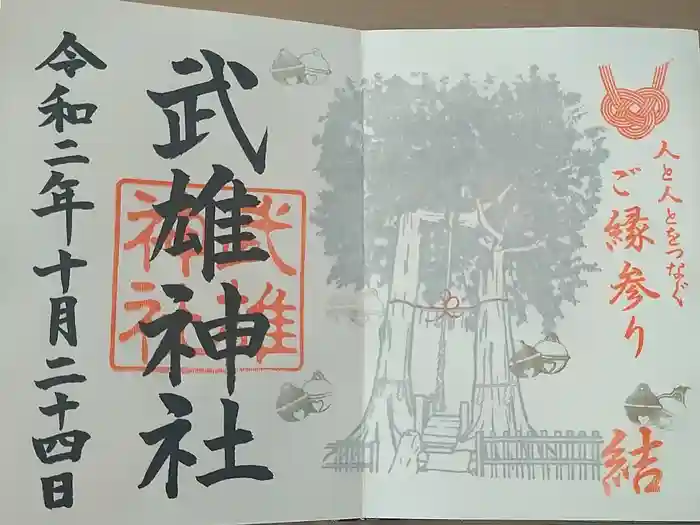 人と人とをつなぐ
ご縁参り
結
武雄神社
武雄
神社
令和二年十月二十四日